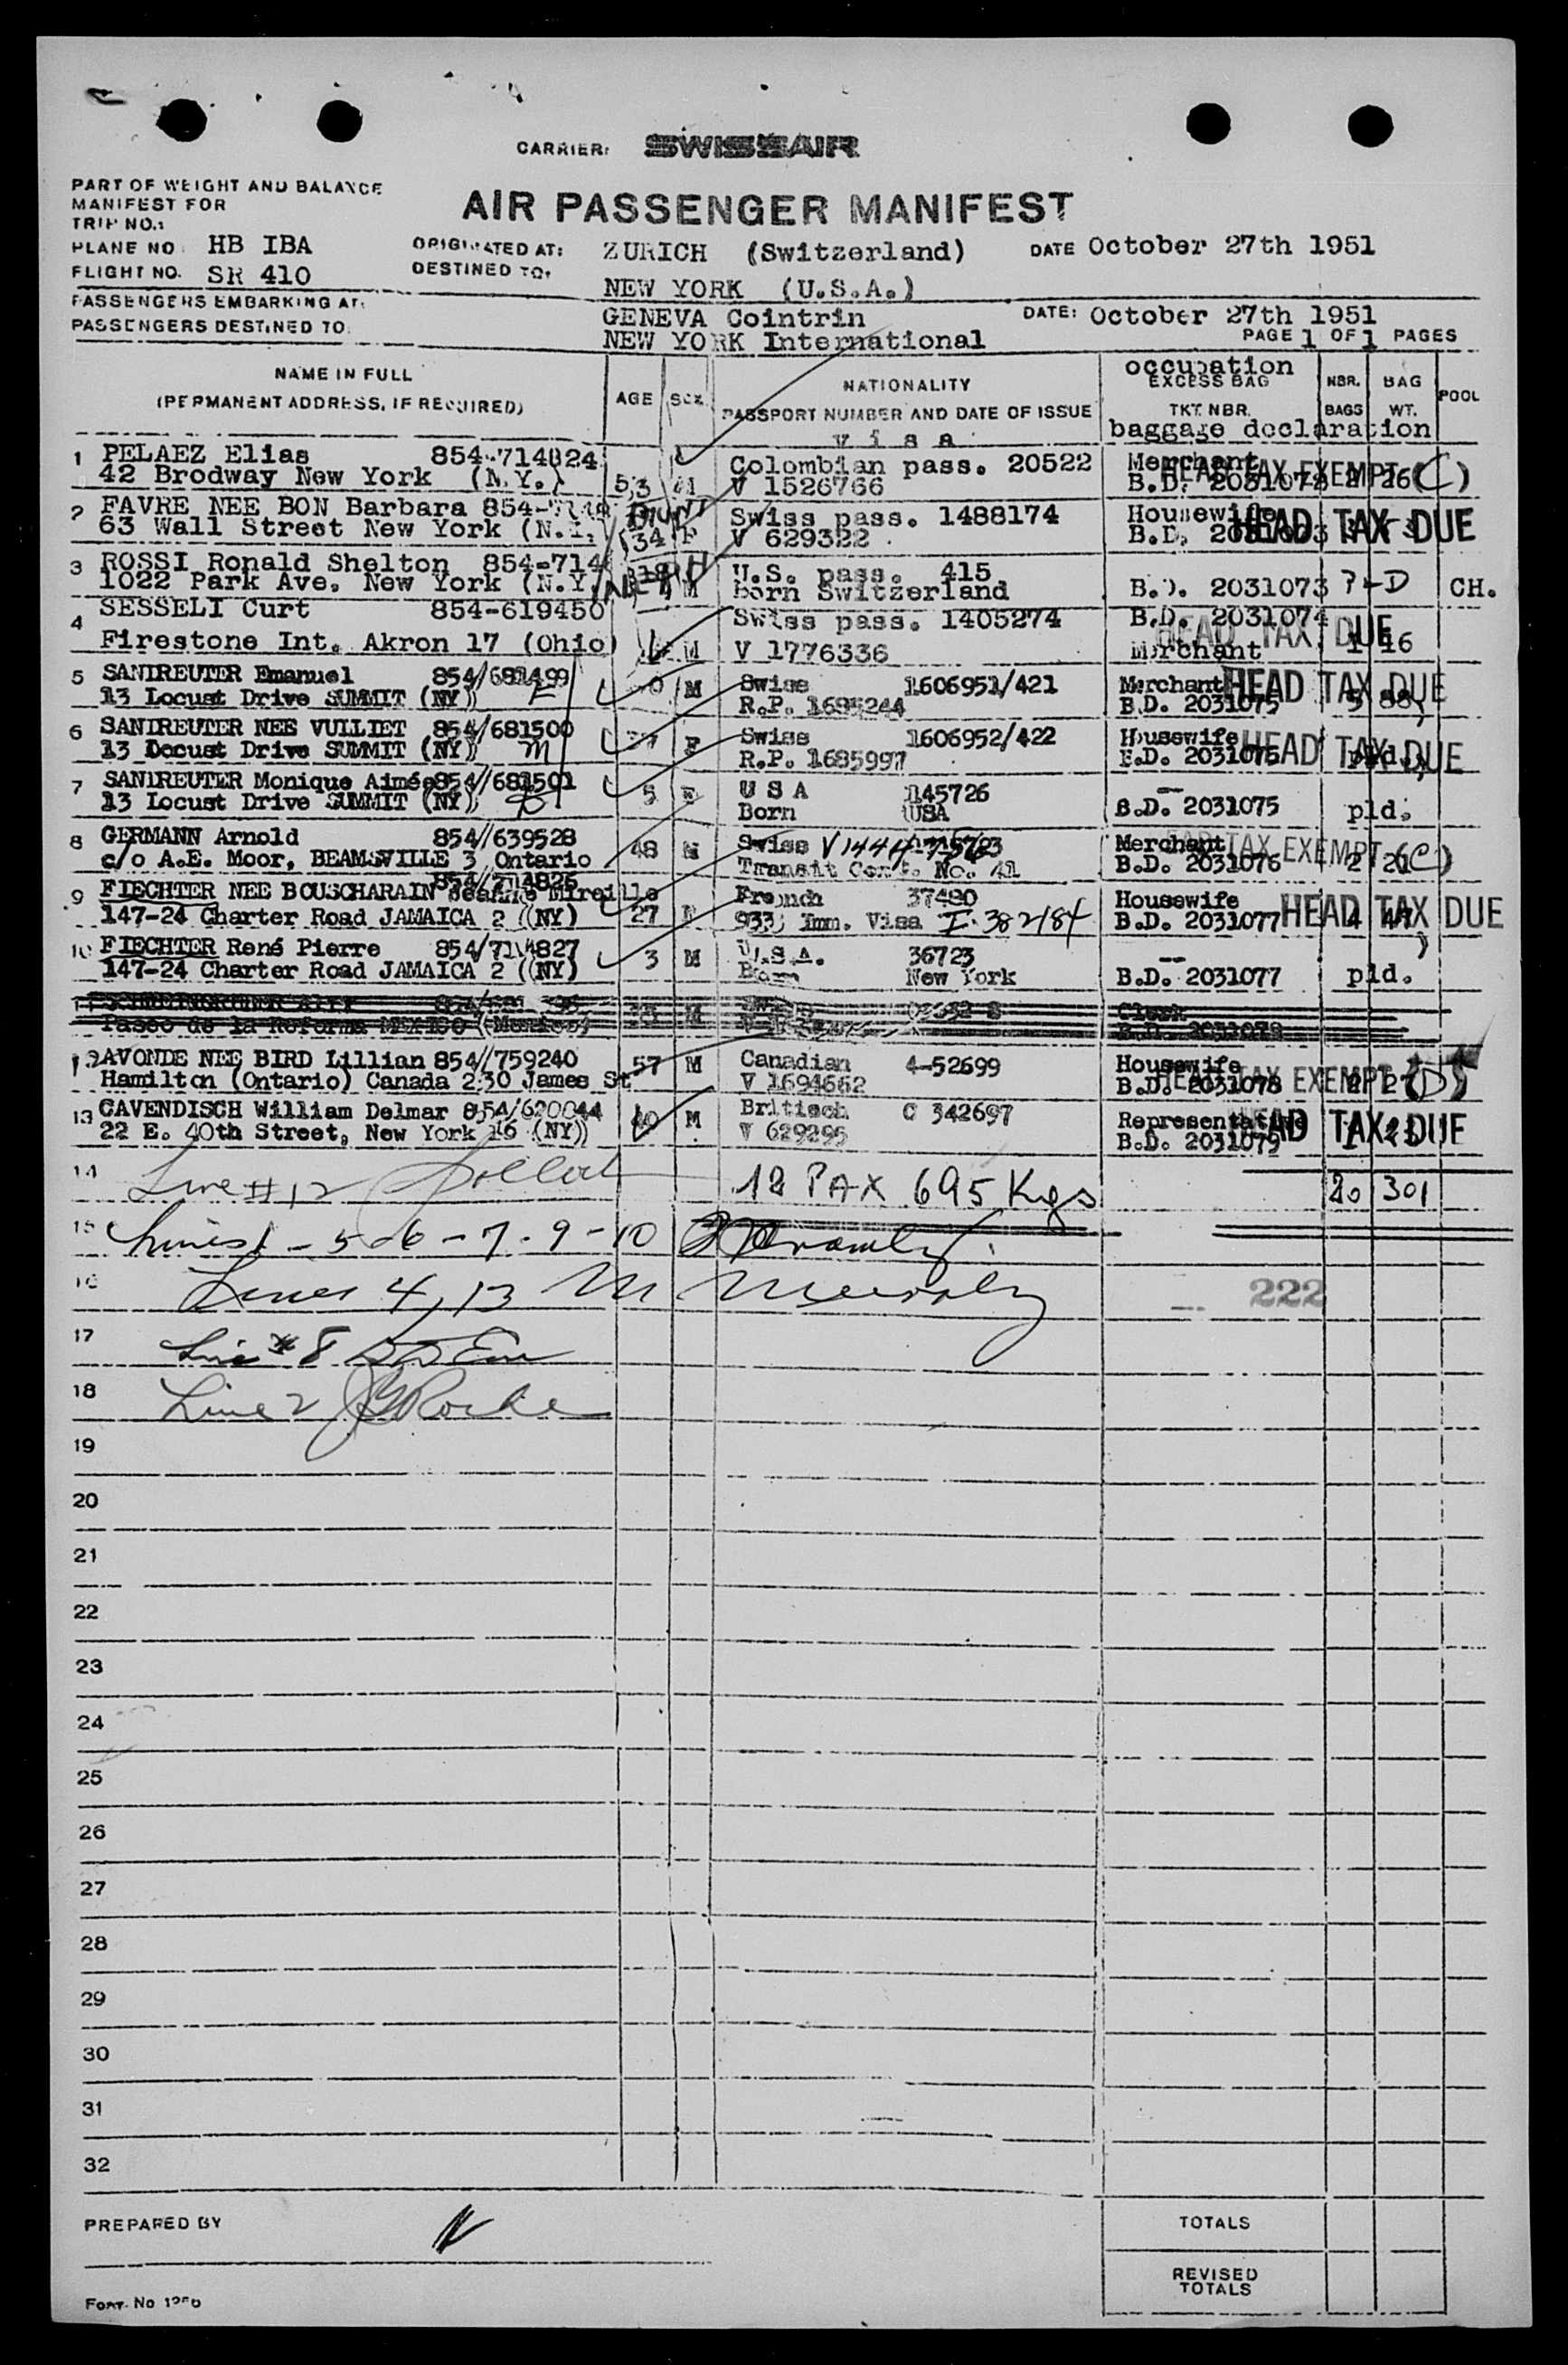 CARRIER: SWISSAIR
PART OF WEIGHT AND BALANCE
MANIFEST FOR
TRIP NO.:
AIR PASSENGER MANIFEST
PLANE NO HB IBA
ORIGINATED AT: ZURICH (Switzerland) DATE October 27th 1951
FLIGHT NO. SR 410
DESTINED TO: NEW YORK (U.S.A.)
PASSENGERS EMBARKING AT: GENEVA Cointrin DATE: October 27th 1951
PASSENGERS DESTINED TO: NEW YORK International PAGE 1 OF 1 PAGES
NAME IN FULL
(PERMANENT ADDRESS, IF REQUIRED)
AGE SEX
NATIONALITY
PASSPORT NUMBER AND DATE OF ISSUE
visa
occupation
EXCESS BAG
TKT. NBR.
NBR. BAGS
BAG WT.
POOL
baggage declaration
1 PELAEZ Elias 854-714824 Colombian pass. 20522 Merchant HEAD TAX EXEMPT (C)
42 Brodway New York (N.Y.) 53 M V 1526766 B.D. 2031072 2 26
2 FAVRE NEE BON Barbara 854- Swiss pass. 1488174 Housewife HEAD TAX DUE
63 Wall Street New York (N.Y. 34 F V 629322 B.D.
3 ROSSI Ronald Shelton 854-714 U.S. pass. 415
1022 Park Ave. New York (N.Y. M born Switzerland B.D. 2031073 CH.
4 SESSELI Curt 854-619450 Swiss pass. 1405274 B.D. 2031074 HEAD TAX DUE
Firestone Int. Akron 17 (Ohio) M V 1776336 Merchant 1 16
5 SANDREUTER Emanuel 854/681499 M Swiss 1606951/421 Merchant HEAD TAX DUE
13 Locust Drive SUMMIT (NY) F R.P. 1685244 B.D. 2031075 5 88
6 SANDREUTER NEE VULLIET 854/681500 F Swiss 1606952/422 Housewife HEAD TAX DUE
13 Docust Drive SUMMIT (NY) M R.P. 1685997 B.D. 2031075 pld.
7 SANDREUTER Monique Aimée 854/681501 5 F U S A 145726
13 Locust Drive SUMMIT (NY) Born USA B.D. 2031075 pld.
8 GERMANN Arnold 854/639528 48 M Swiss Merchant HEAD TAX EXEMPT (C)
c/o A.E. Moor, BEAMSVILLE 3 Ontario Transit Cert. No. 41 B.D. 2031076 2 21
854/714826
9 FIECHTER NEE BOUSCHARAIN Jeanne Mireille French 37480 Housewife HEAD TAX DUE
147-24 Charter Road JAMAICA 2 (NY) 27 F 933 Imm. Visa I-382184 B.D. 2031077 4 47
10 FIECHTER René Pierre 854/714827 3 M U.S.A. 36723
147-24 Charter Road JAMAICA 2 (NY) Born New York B.D. 2031077 pld.
Paseo de la Reforma MEXICO (Mexico) M Clerk
B.D. 2031078
12 AVONDE NEE BIRD Lillian 854//759240 57 M Canadian 4-52699 Housewife HEAD TAX EXEMPT (D)
Hamilton (Ontario) Canada 230 James St V 1694662 B.D. 2031078 2 27
13 CAVENDISCH William Delmar 854/620044 40 M Britisch C 342697 Representative HEAD TAX DUE
22 E. 40th Street, New York 16 (NY) V 629295 B.D. 2031079
14 Line #12 12 PAX 695 Kgs 20 301
15 Lines 1-5-6-7-9-10
16 Lines 4, 13 222
17 Line #8
18 Line 2
19
20
21
22
23
24
25
26
27
28
29
30
31
32
PREPARED BY
TOTALS
REVISED
TOTALS